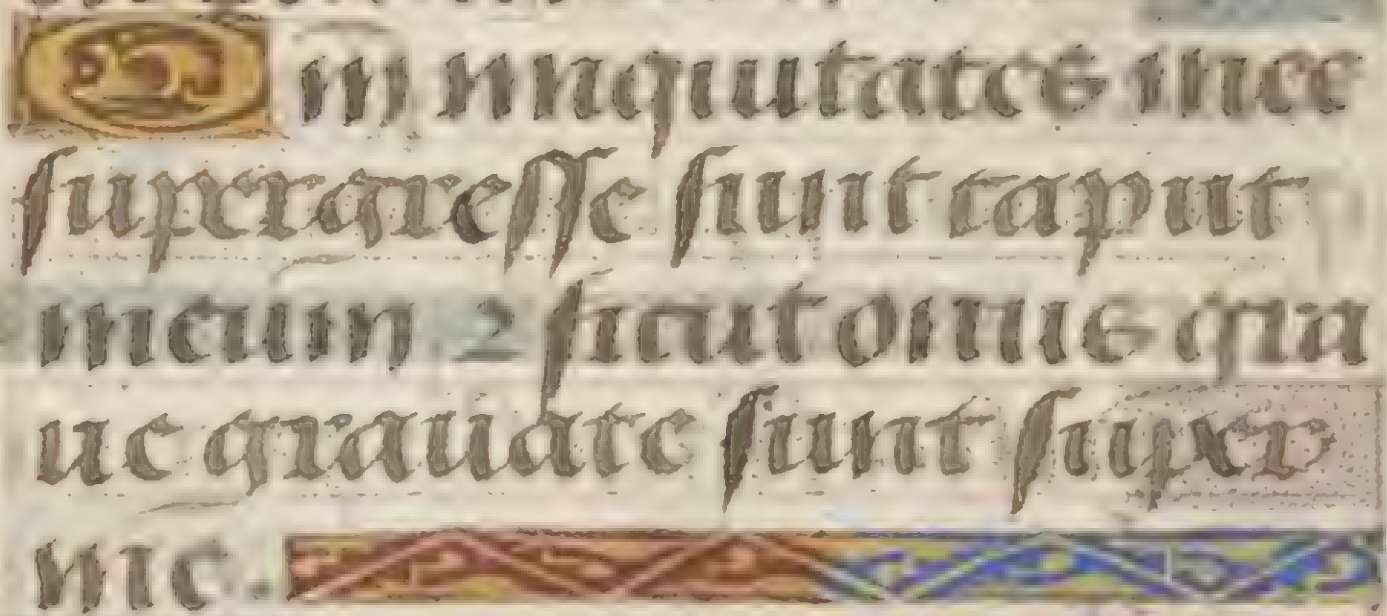 Qm̄ iniquitates mee
ſupergreſſe ſunt caput
meum ⁊ ſicut onus gra
ue grauate ſunt ſuper
me.